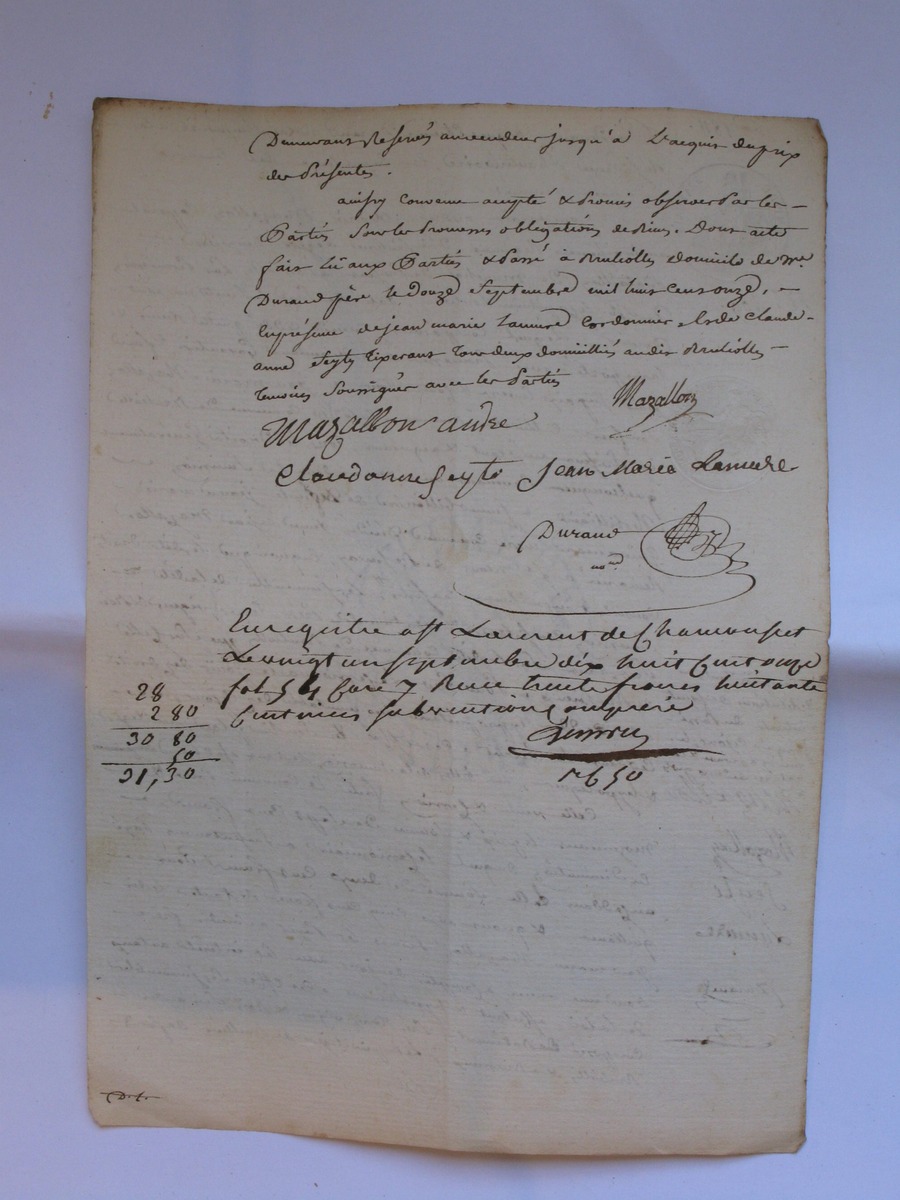 Demeurant Reservés au vendeur jusqu'à L'acquis du prix
des Présentes.
ainsy convenu accepté & Promis observer Par les
Partiës Sous les Promesses obligations de Biens. Dont acte
fait Lû aux Partiës & Passé à Bruliolles domicile de me
Durand père le Douze Septembre mil huit cent onze,
En présence de jean marie Lamure Cordonnier, & de Claude
anne Seyte Tixerant Tous deux domiciliés au dit Bruliolles
Temoins Soussignés avec les Partiës
Mazallon
Mazallon andre
Claudanne Seyte Jean Marie Lamure
Durand
no.re
Enregistré a St Laurent de Chamousset
Le vingt un septembre dix huit Cent onze
fol. 54 Case 7 Reçu trente francs huitante
Centimes subvention Comprise
28
2 80
30 80
50
31,30
176 50